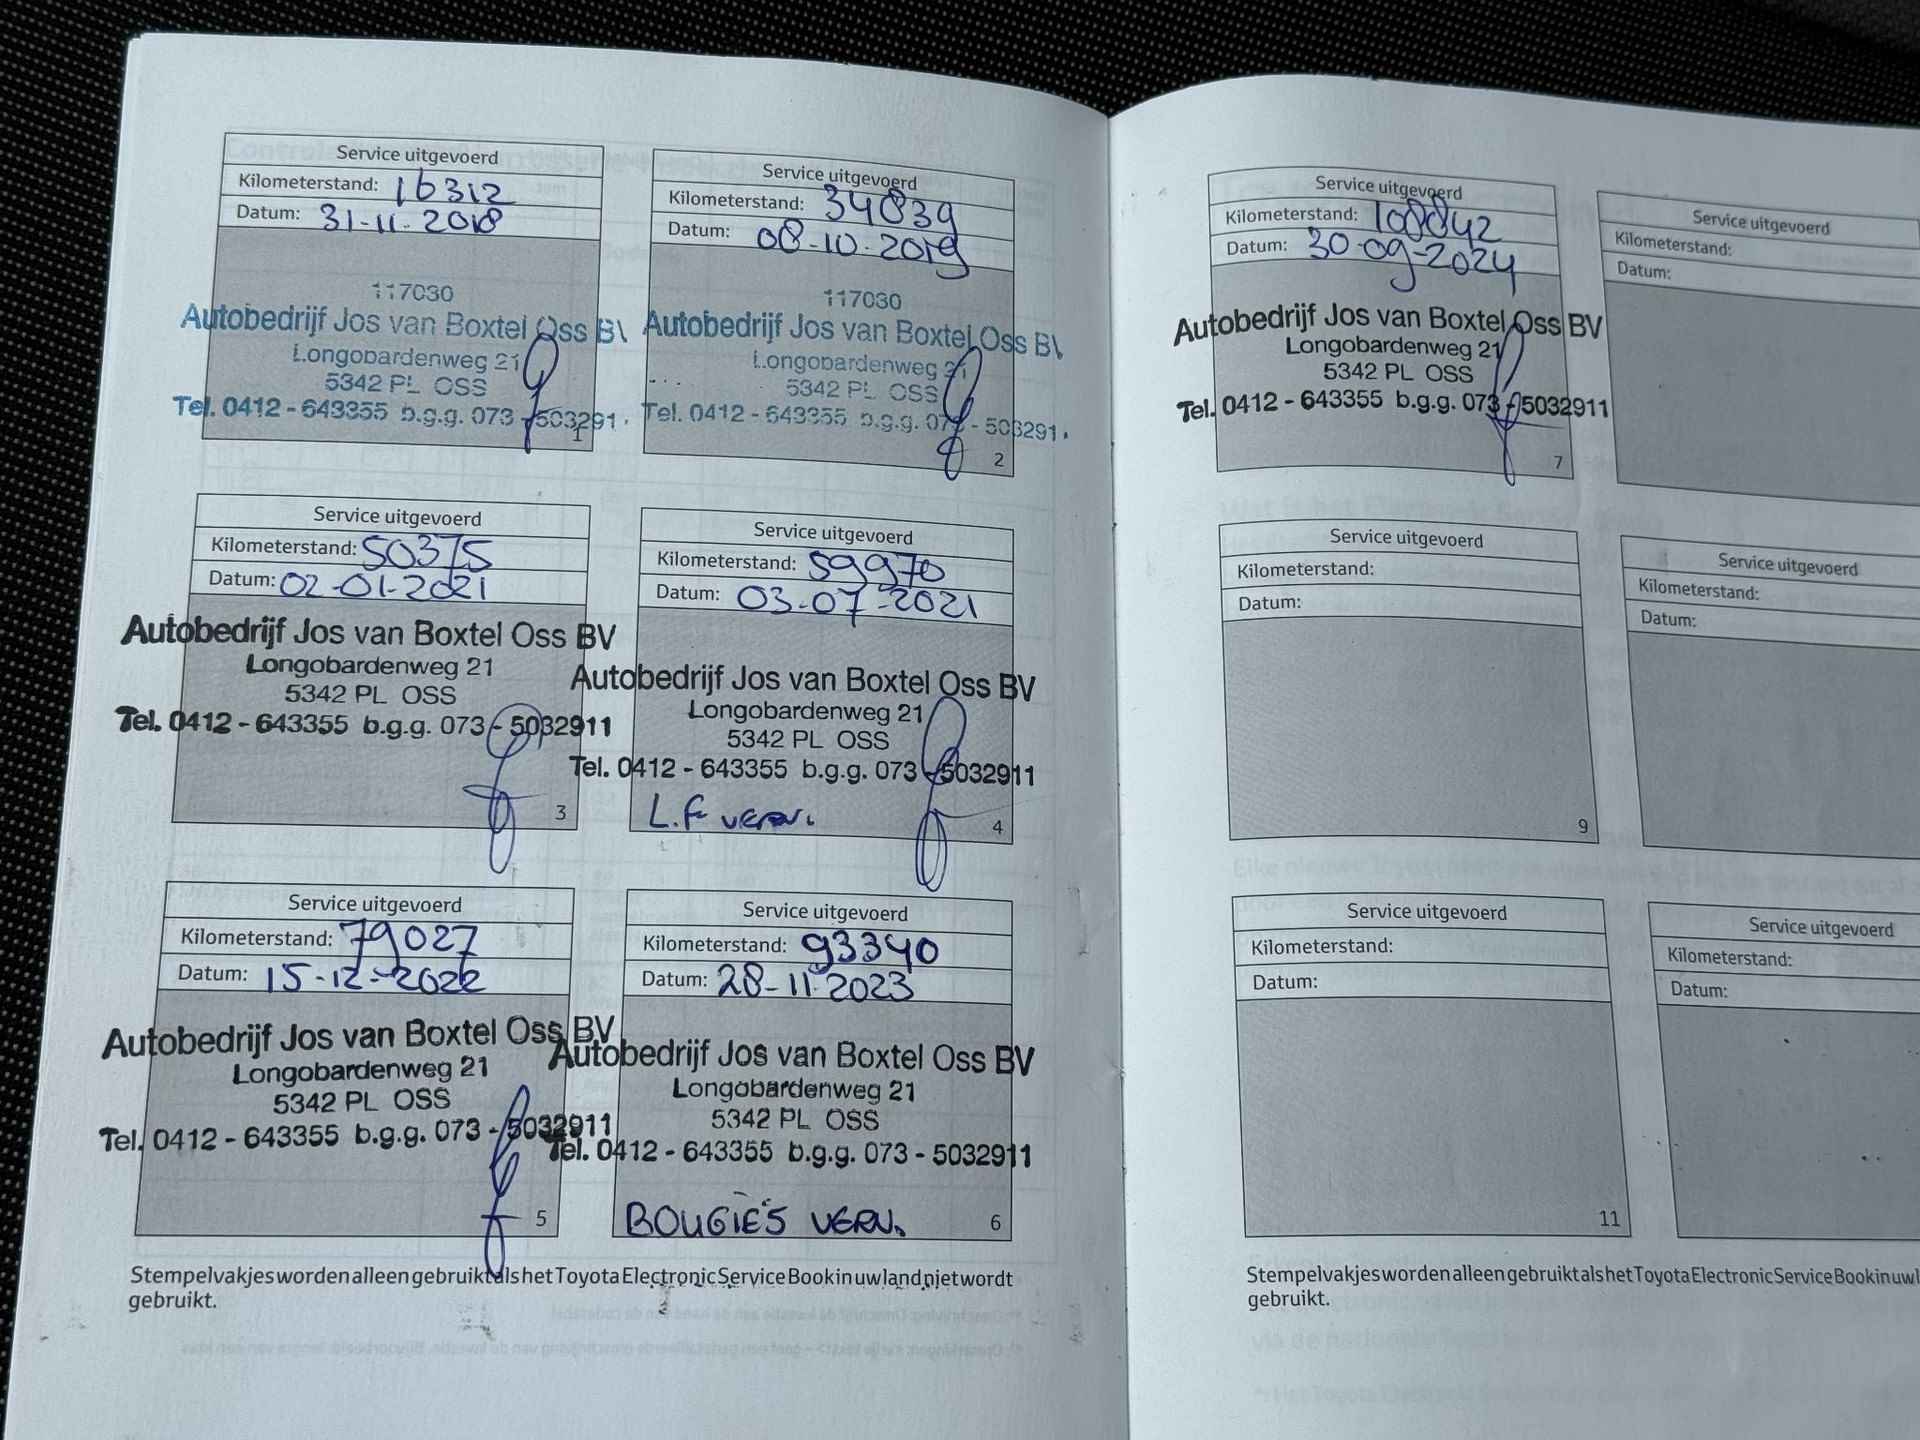 Service uitgevoerd
Kilometerstand: 16312
Datum: 31-11-2018
117030
Autobedrijf Jos van Boxtel Oss BV
Longobardenweg 21
5342 PL OSS
Tel. 0412 - 643355 b.g.g. 073 - 503291
1
Service uitgevoerd
Kilometerstand: 34839
Datum: 08-10-2019
117030
Autobedrijf Jos van Boxtel Oss BV
Longobardenweg 21
5342 PL OSS
Tel. 0412 - 643355 b.g.g. 073 - 503291
2
Service uitgevoerd
Kilometerstand: 50375
Datum: 02-01-2021
Autobedrijf Jos van Boxtel Oss BV
Longobardenweg 21
5342 PL OSS
Tel. 0412 - 643355 b.g.g. 073 - 5032911
3
Service uitgevoerd
Kilometerstand: 59970
Datum: 03-07-2021
Autobedrijf Jos van Boxtel Oss BV
Longobardenweg 21
5342 PL OSS
Tel. 0412 - 643355 b.g.g. 073 - 5032911
L.F VERN.
4
Service uitgevoerd
Kilometerstand: 79027
Datum: 15-12-2022
Autobedrijf Jos van Boxtel Oss BV
Longobardenweg 21
5342 PL OSS
Tel. 0412 - 643355 b.g.g. 073 - 5032911
5
Service uitgevoerd
Kilometerstand: 93340
Datum: 28-11-2023
Autobedrijf Jos van Boxtel Oss BV
Longobardenweg 21
5342 PL OSS
Tel. 0412 - 643355 b.g.g. 073 - 5032911
BOUGIE'S VERN.
6
Stempelvakjes worden alleen gebruikt als het Toyota Electronic Service Book in uw land niet wordt
gebruikt.
Service uitgevoerd
Kilometerstand: 108842
Datum: 30-09-2024
Autobedrijf Jos van Boxtel Oss BV
Longobardenweg 21
5342 PL OSS
Tel. 0412 - 643355 b.g.g. 073 - 5032911
7
Service uitgevoerd
Kilometerstand:
Datum:
Service uitgevoerd
Kilometerstand:
Datum:
9
Service uitgevoerd
Kilometerstand:
Datum:
Service uitgevoerd
Kilometerstand:
Datum:
11
Service uitgevoerd
Kilometerstand:
Datum:
Stempelvakjes worden alleen gebruikt als het Toyota Electronic Service Book in uw l
gebruikt.